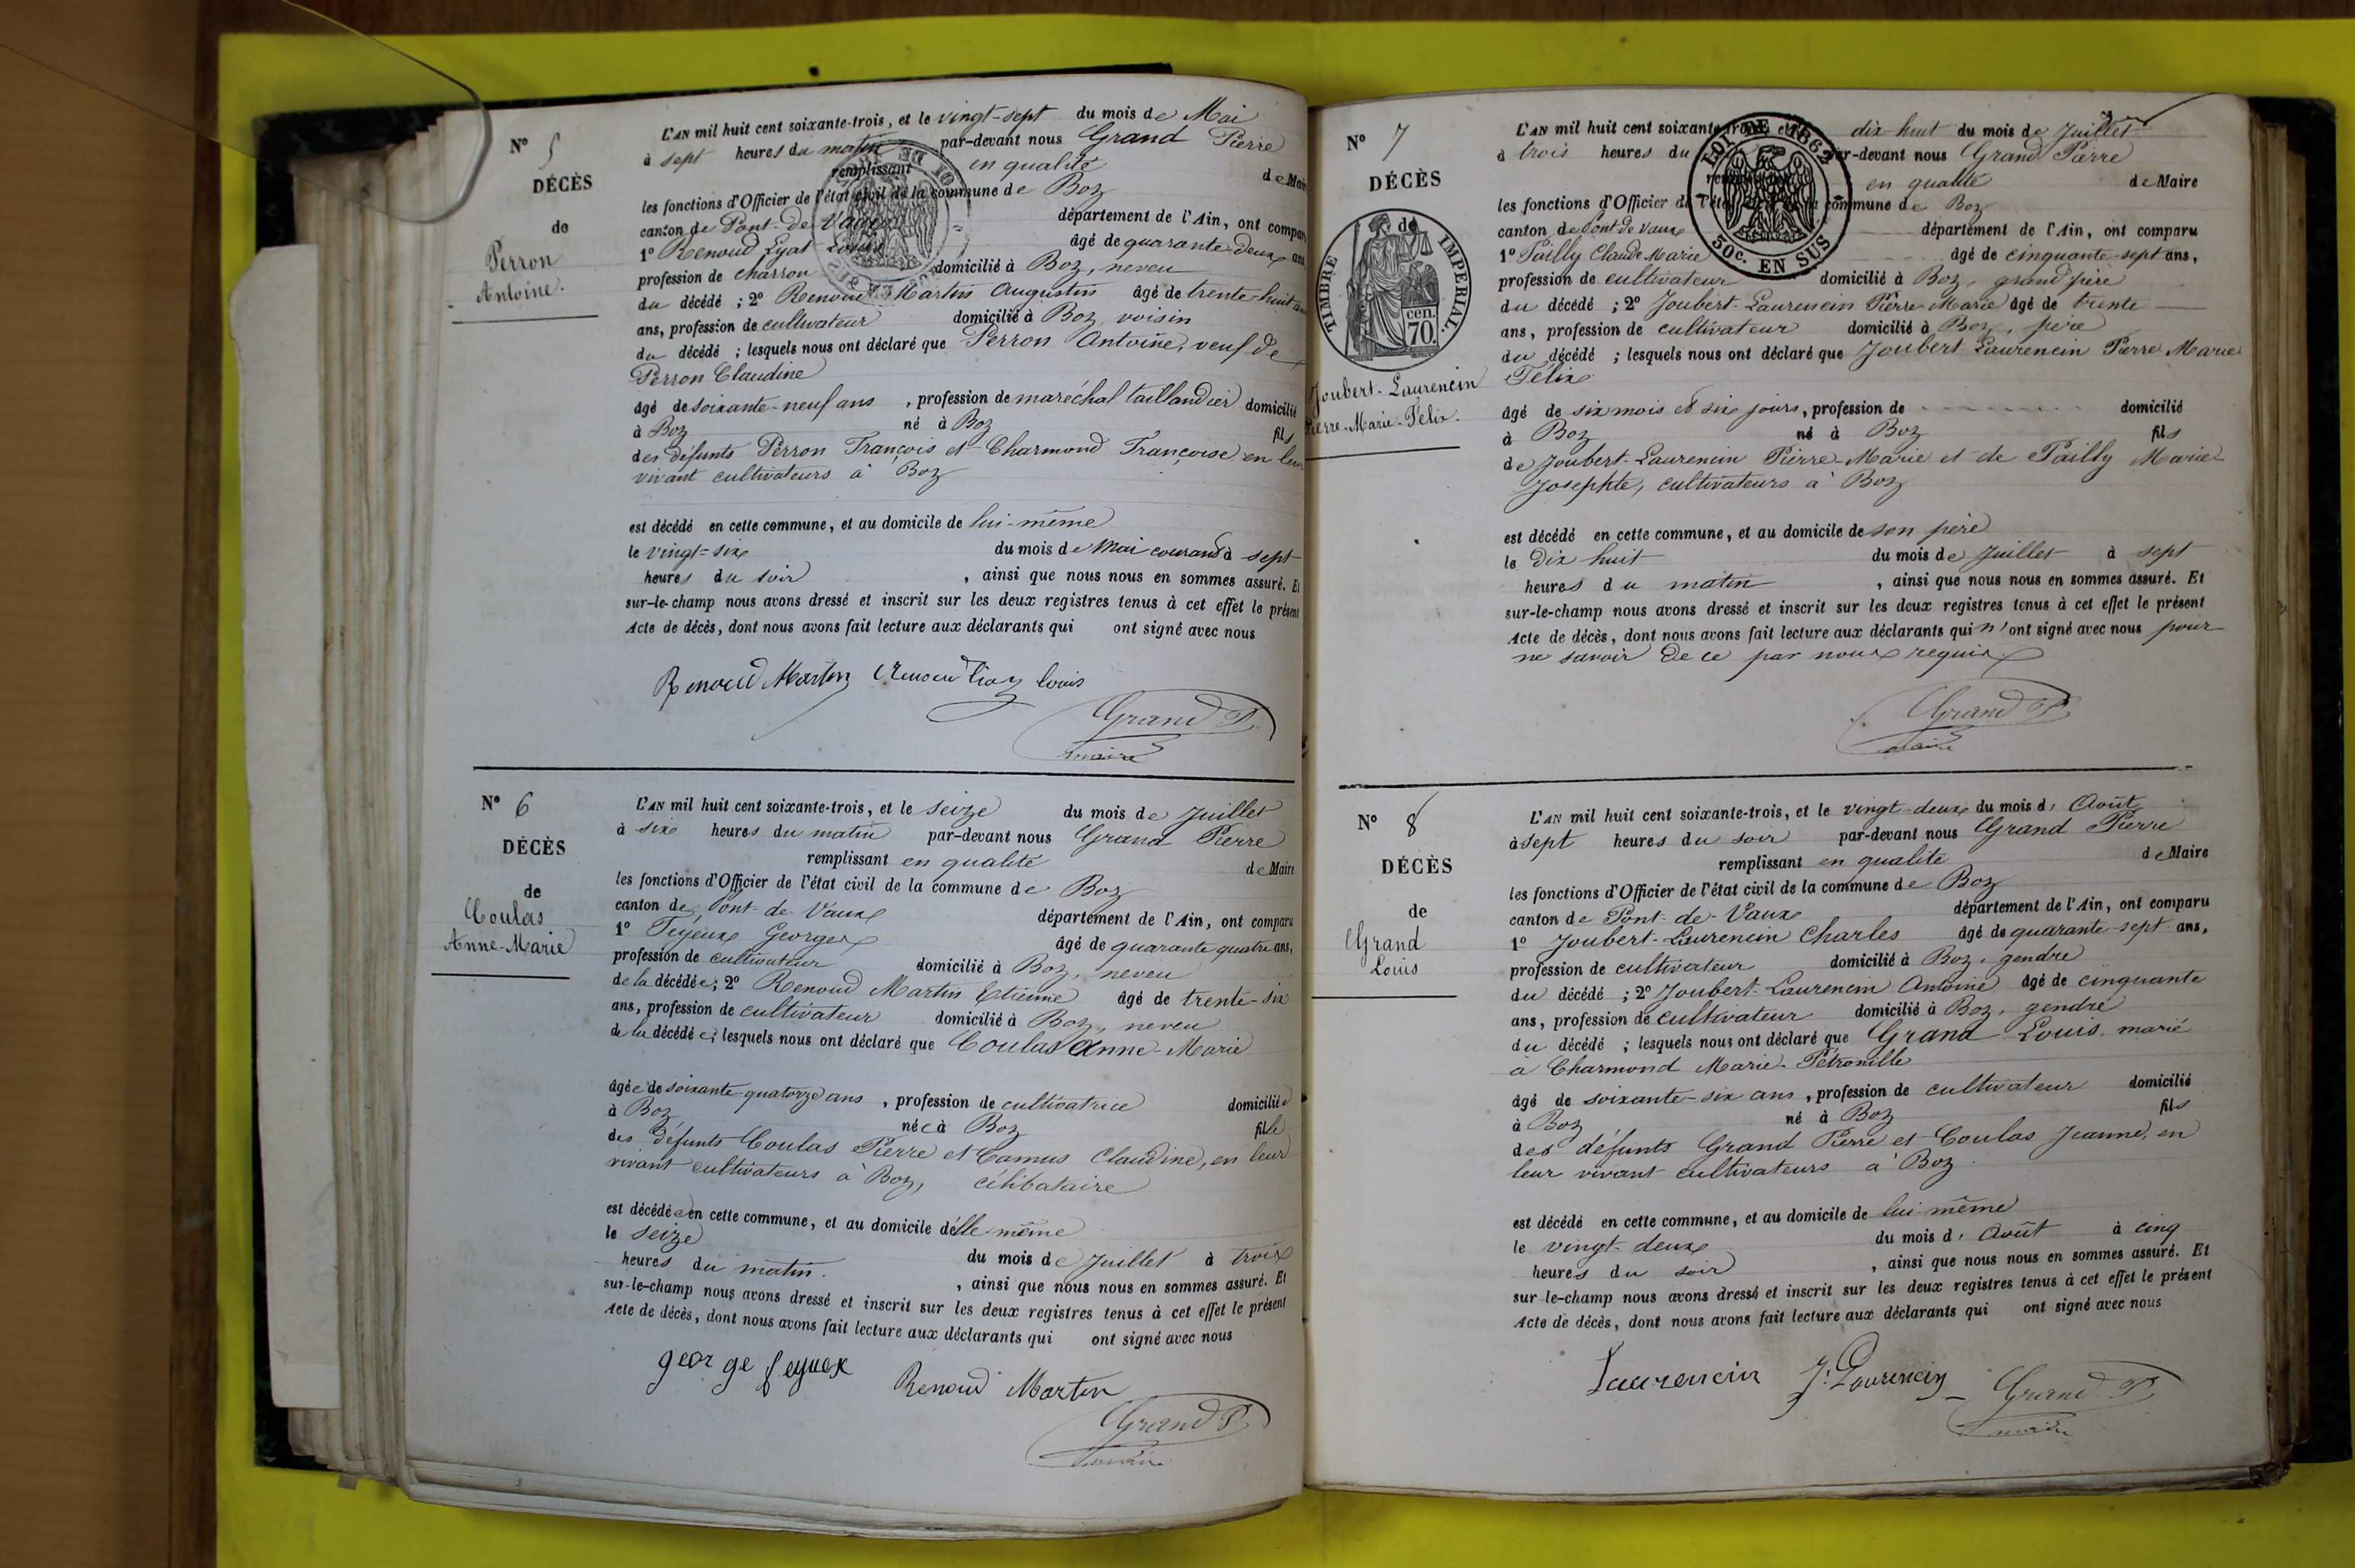 N° 5
DÉCÈS
de
Perron
Antoine.
L'AN mil huit cent soixante-trois, et le vingt-sept du mois de Mai
à sept heures du matin par-devant nous Grand Pierre
remplissant en qualité de Maire
les fonctions d'Officier de l'état civil de la commune de Boz
canton de Pont-de-Vaux département de l'Ain, ont comparu
1° Renoud Lyat Louis âgé de quarante deux ans
profession de charron domicilié à Boz, neveu
du décédé ; 2° Renoud Martin Augustin âgé de trente-huit ans
ans, profession de cultivateur domicilié à Boz, voisin
du décédé ; lesquels nous ont déclaré que Perron Antoine, veuf de
Perron Claudine
âgé de soixante-neuf ans , profession de maréchal taillandier domicilié
à Boz né à Boz fils
des défunts Perron François et Charmond Françoise en leur
vivant cultivateurs à Boz
est décédé en cette commune, et au domicile de lui-même
le vingt-six du mois de Mai courant à sept
heures du soir , ainsi que nous nous en sommes assuré. Et
sur-le-champ nous avons dressé et inscrit sur les deux registres tenus à cet effet le présent
Acte de décès, dont nous avons fait lecture aux déclarants qui ont signé avec nous
Renoud Martin Louis
Grand P.
maire
N° 6
DÉCÈS
de
Coulas
Anne-Marie
L'AN mil huit cent soixante-trois, et le seize du mois de Juillet
à six heures du matin par-devant nous Grand Pierre
remplissant en qualité de Maire
les fonctions d'Officier de l'état civil de la commune de Boz
canton de Pont-de-Vaux département de l'Ain, ont comparu
1° Feyeux Georges âgé de quarante quatre ans,
profession de cultivateur domicilié à Boz, neveu
de la décédée ; 2° Renoud Martin Etienne âgé de trente-six
ans, profession de cultivateur domicilié à Boz, neveu
de la décédée ; lesquels nous ont déclaré que Coulas Anne-Marie
âgée de soixante-quatorze ans , profession de cultivatrice domiciliée
à Boz née à Boz fille
des défunts Coulas Pierre et Camus Claudine, en leur
vivant cultivateurs à Boz, célibataire
est décédée en cette commune, et au domicile d'elle même
le seize du mois de Juillet à trois
heures du matin. , ainsi que nous nous en sommes assuré. Et
sur-le-champ nous avons dressé et inscrit sur les deux registres tenus à cet effet le présent
Acte de décès, dont nous avons fait lecture aux déclarants qui ont signé avec nous
george feyuex Renoud Martin
Grand P.
maire
N° 7
DÉCÈS
de
TIMBRE IMPERIAL.
cen.
70.
Joubert-Laurencin
Pierre-Marie-Félix.
LOI DE 1862
50c. EN SUS
L'AN mil huit cent soixante-trois, et le dix huit du mois de Juillet
à trois heures du par-devant nous Grand Pierre
en qualité de Maire
les fonctions d'Officier de l'état civil de la commune de Boz
canton de Pont de Vaux département de l'Ain, ont comparu
1° Pailly Claude Marie âgé de cinquante-sept ans,
profession de cultivateur domicilié à Boz, grand père
du décédé ; 2° Joubert-Laurencin Pierre-Marie âgé de trente
ans, profession de cultivateur domicilié à Boz, père
du décédé ; lesquels nous ont déclaré que Joubert-Laurencin Pierre Marie
Félix
âgé de six mois et six jours, profession de domicilié
à Boz né à Boz fils
de Joubert-Laurencin Pierre-Marie et de Pailly Marie
Josephte, cultivateurs à Boz
est décédé en cette commune, et au domicile de son père
le dix huit du mois de Juillet à sept
heures du matin , ainsi que nous nous en sommes assuré. Et
sur-le-champ nous avons dressé et inscrit sur les deux registres tenus à cet effet le présent
Acte de décès, dont nous avons fait lecture aux déclarants qui n'ont signé avec nous pour
ne savoir de ce par nous requis
Grand P.
maire
N° 8
DÉCÈS
de
Grand
Louis
L'AN mil huit cent soixante-trois, et le vingt-deux du mois d' Août
à sept heures du soir par-devant nous Grand Pierre
remplissant en qualité de Maire
les fonctions d'Officier de l'état civil de la commune de Boz
canton de Pont-de-Vaux département de l'Ain, ont comparu
1° Joubert-Laurencin Charles âgé de quarante-sept ans,
profession de cultivateur domicilié à Boz, gendre
du décédé ; 2° Joubert-Laurencin Antoine âgé de cinquante
ans, profession de cultivateur domicilié à Boz, gendre
du décédé ; lesquels nous ont déclaré que Grand Louis, marié
à Charmond Marie-Pétronille
âgé de soixante-six ans , profession de cultivateur domicilié
à Boz né à Boz fils
des défunts Grand Pierre et Coulas Jeanne, en
leur vivant cultivateurs à Boz
est décédé en cette commune, et au domicile de lui même
le vingt-deux du mois d' Août à cinq
heures du soir , ainsi que nous nous en sommes assuré. Et
sur-le-champ nous avons dressé et inscrit sur les deux registres tenus à cet effet le présent
Acte de décès, dont nous avons fait lecture aux déclarants qui ont signé avec nous
Laurencin J. Laurencin Grand P.
maire